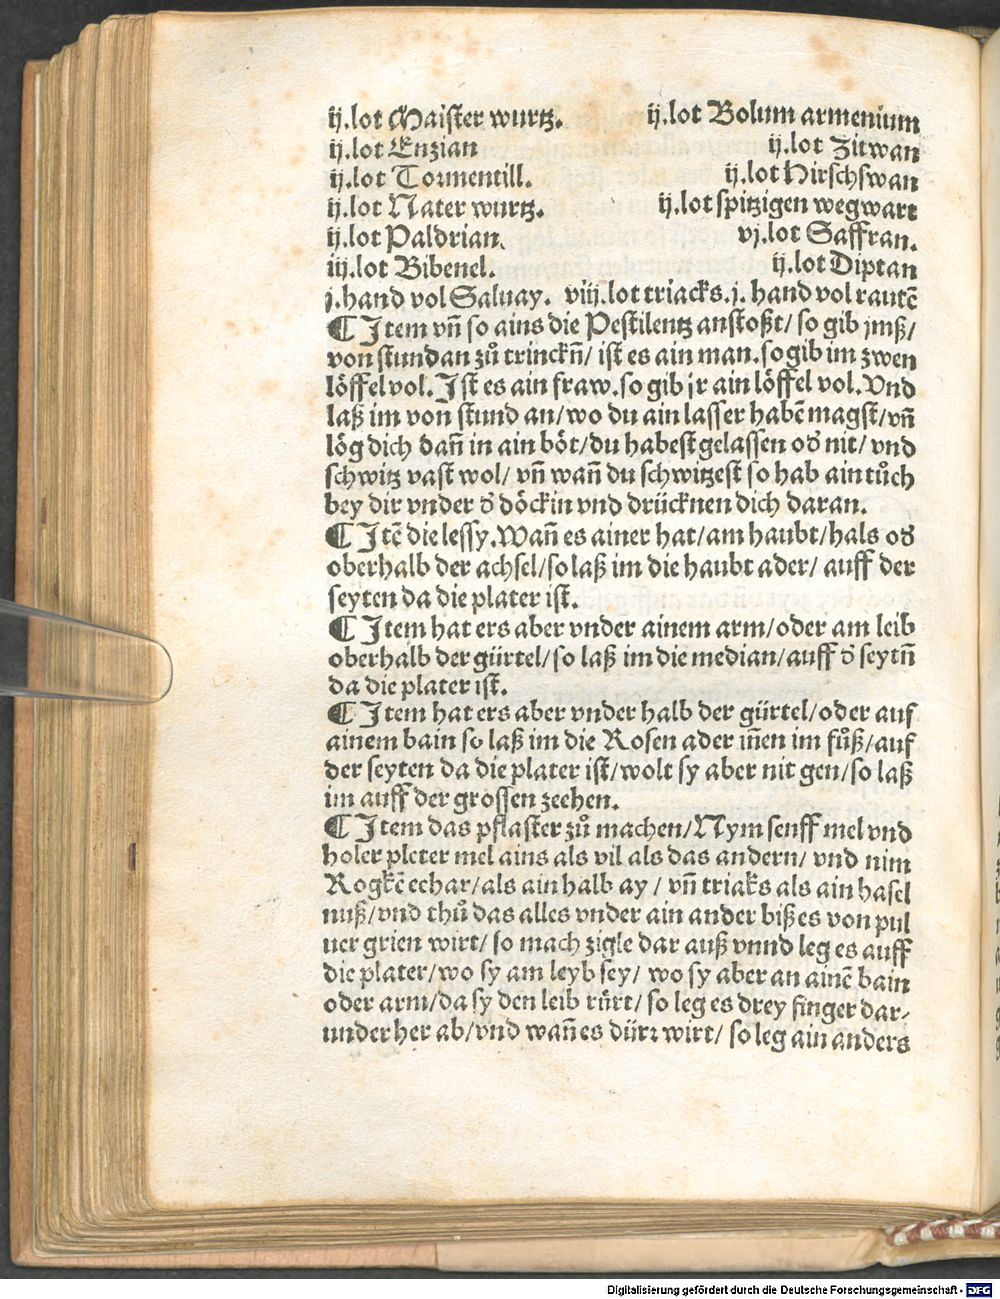 ij.lot Maister wurtz. ij.lot Bolum armenium
ij.lot Enzian ij.lot Zitwan
ij.lot Tormentill. ij.lot Hirschswan
ij.lot Nater wurtz. ij.lot spitzigen wegwart
ij.lot Paldrian. vj.lot Saffran.
iij.lot Bibenel. ij.lot Diptan
j.hand vol Saluay. viij.lot triacks.j. hand vol rautē
¶ Item vn̄ so ains die Pestilentz anstoßt/ so gib jmß/
von stund an zů trinckn̄/ ist es ain man.so gib im zwen
löffel vol.Ist es ain fraw.so gib jr ain löffel vol.Vnd
laß im von stund an/wo du ain lasser habē magst/vn̄
lög dich dan̄ in ain böt/du habest gelassen od̛ nit/ vnd
schwitz vast wol/ vn̄ wan̄ du schwitzest so hab ain tůch
bey dir vnder d̛ döckin vnd drücknen dich daran.
¶ Itē die lessy.Wan̄ es ainer hat/am haubt/hals od̛
oberhalb der achsel/so laß im die haubt ader/ auff der
seyten da die plater ist.
¶ Item hat ers aber vnder ainem arm/oder am leib
oberhalb der gürtel/so laß im die median/auff d̛ seytn̄
da die plater ist.
¶ Item hat ers aber vnder halb der gürtel/oder auf
ainem bain so laß im die Rosen ader in̄en im fůß/auf
der seyten da die plater ist/wolt sy aber nit gen/so laß
im auff der grossen zeehen.
¶ Item das pflaster zů machen/Nym senff mel vnd
holer pleter mel ains als vil als das andern/ vnd nim
Rogkē echar/als ain halb ay / vn̄ triaks als ain hasel
nuß/vnd thů das alles vnder ain ander biß es von pul
uer grien wirt/ so mach zigle dar auß vnnd leg es auff
die plater/wo sy am leyb sey/ wo sy aber an ainē bain
oder arm/da sy den leib rürt/ so leg es drey finger dar-
under her ab/vnd wan̄ es dürr wirt/ so leg ain anders
Digitalisierung gefördert durch die Deutsche Forschungsgemeinschaft - DFG